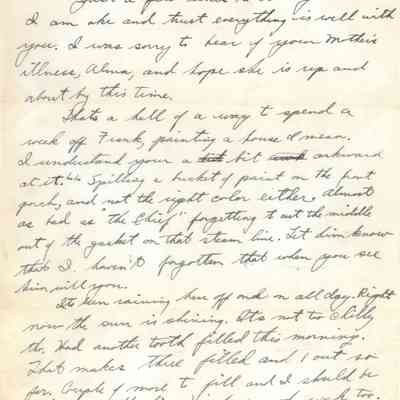 Just a few
I am oke and trust everything is well with
you. I was sorry to hear of your Mothers
illness, Alma, and hope she is up and
about by this time.
Thats a hell of a way to spend a
week off Frank, painting a house I mean.
I understand your a bit awkward
at it. Spilling a bucket of paint on the front
porch, and not the right color either. Almost
as bad as "The Chief" forgetting to cut the middle
out of the gasket on that steam line. Let him know
that I haven't forgotten that when you see
him will you.
Its been raining here off and on all day. Right
now the sun is shining. Its not too chilly
tho. Had another tooth filled this morning.
That makes three filled and 1 out so
far. Couple of more to fill and I should be
week too.